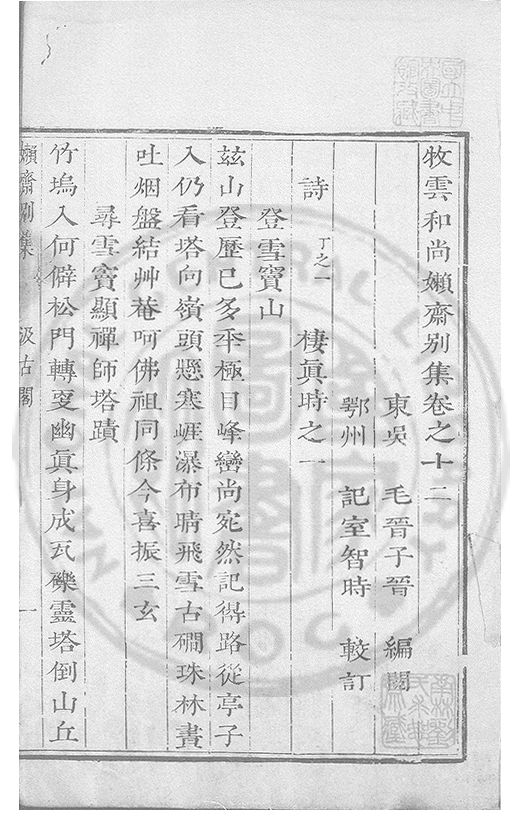 牧雲和尚嬾齋别集卷之十二
東吳 毛晉子晉 編閱
鄂州 記室智時 較訂
詩 丁之一 棲眞時之一
登雪竇山
玆山登歷已多年極目峰巒尚宛然記得路從亭子
入仍看塔向嶺頭懸寒崖瀑布晴飛雪古磵珠林晝
吐烟盤結艸菴呵佛祖同條今喜振三玄
尋雪竇顯禪師塔蹟
竹塢入何僻松門轉更幽眞身成瓦礫靈塔倒山丘
嬾齋别集 汲古閣 一